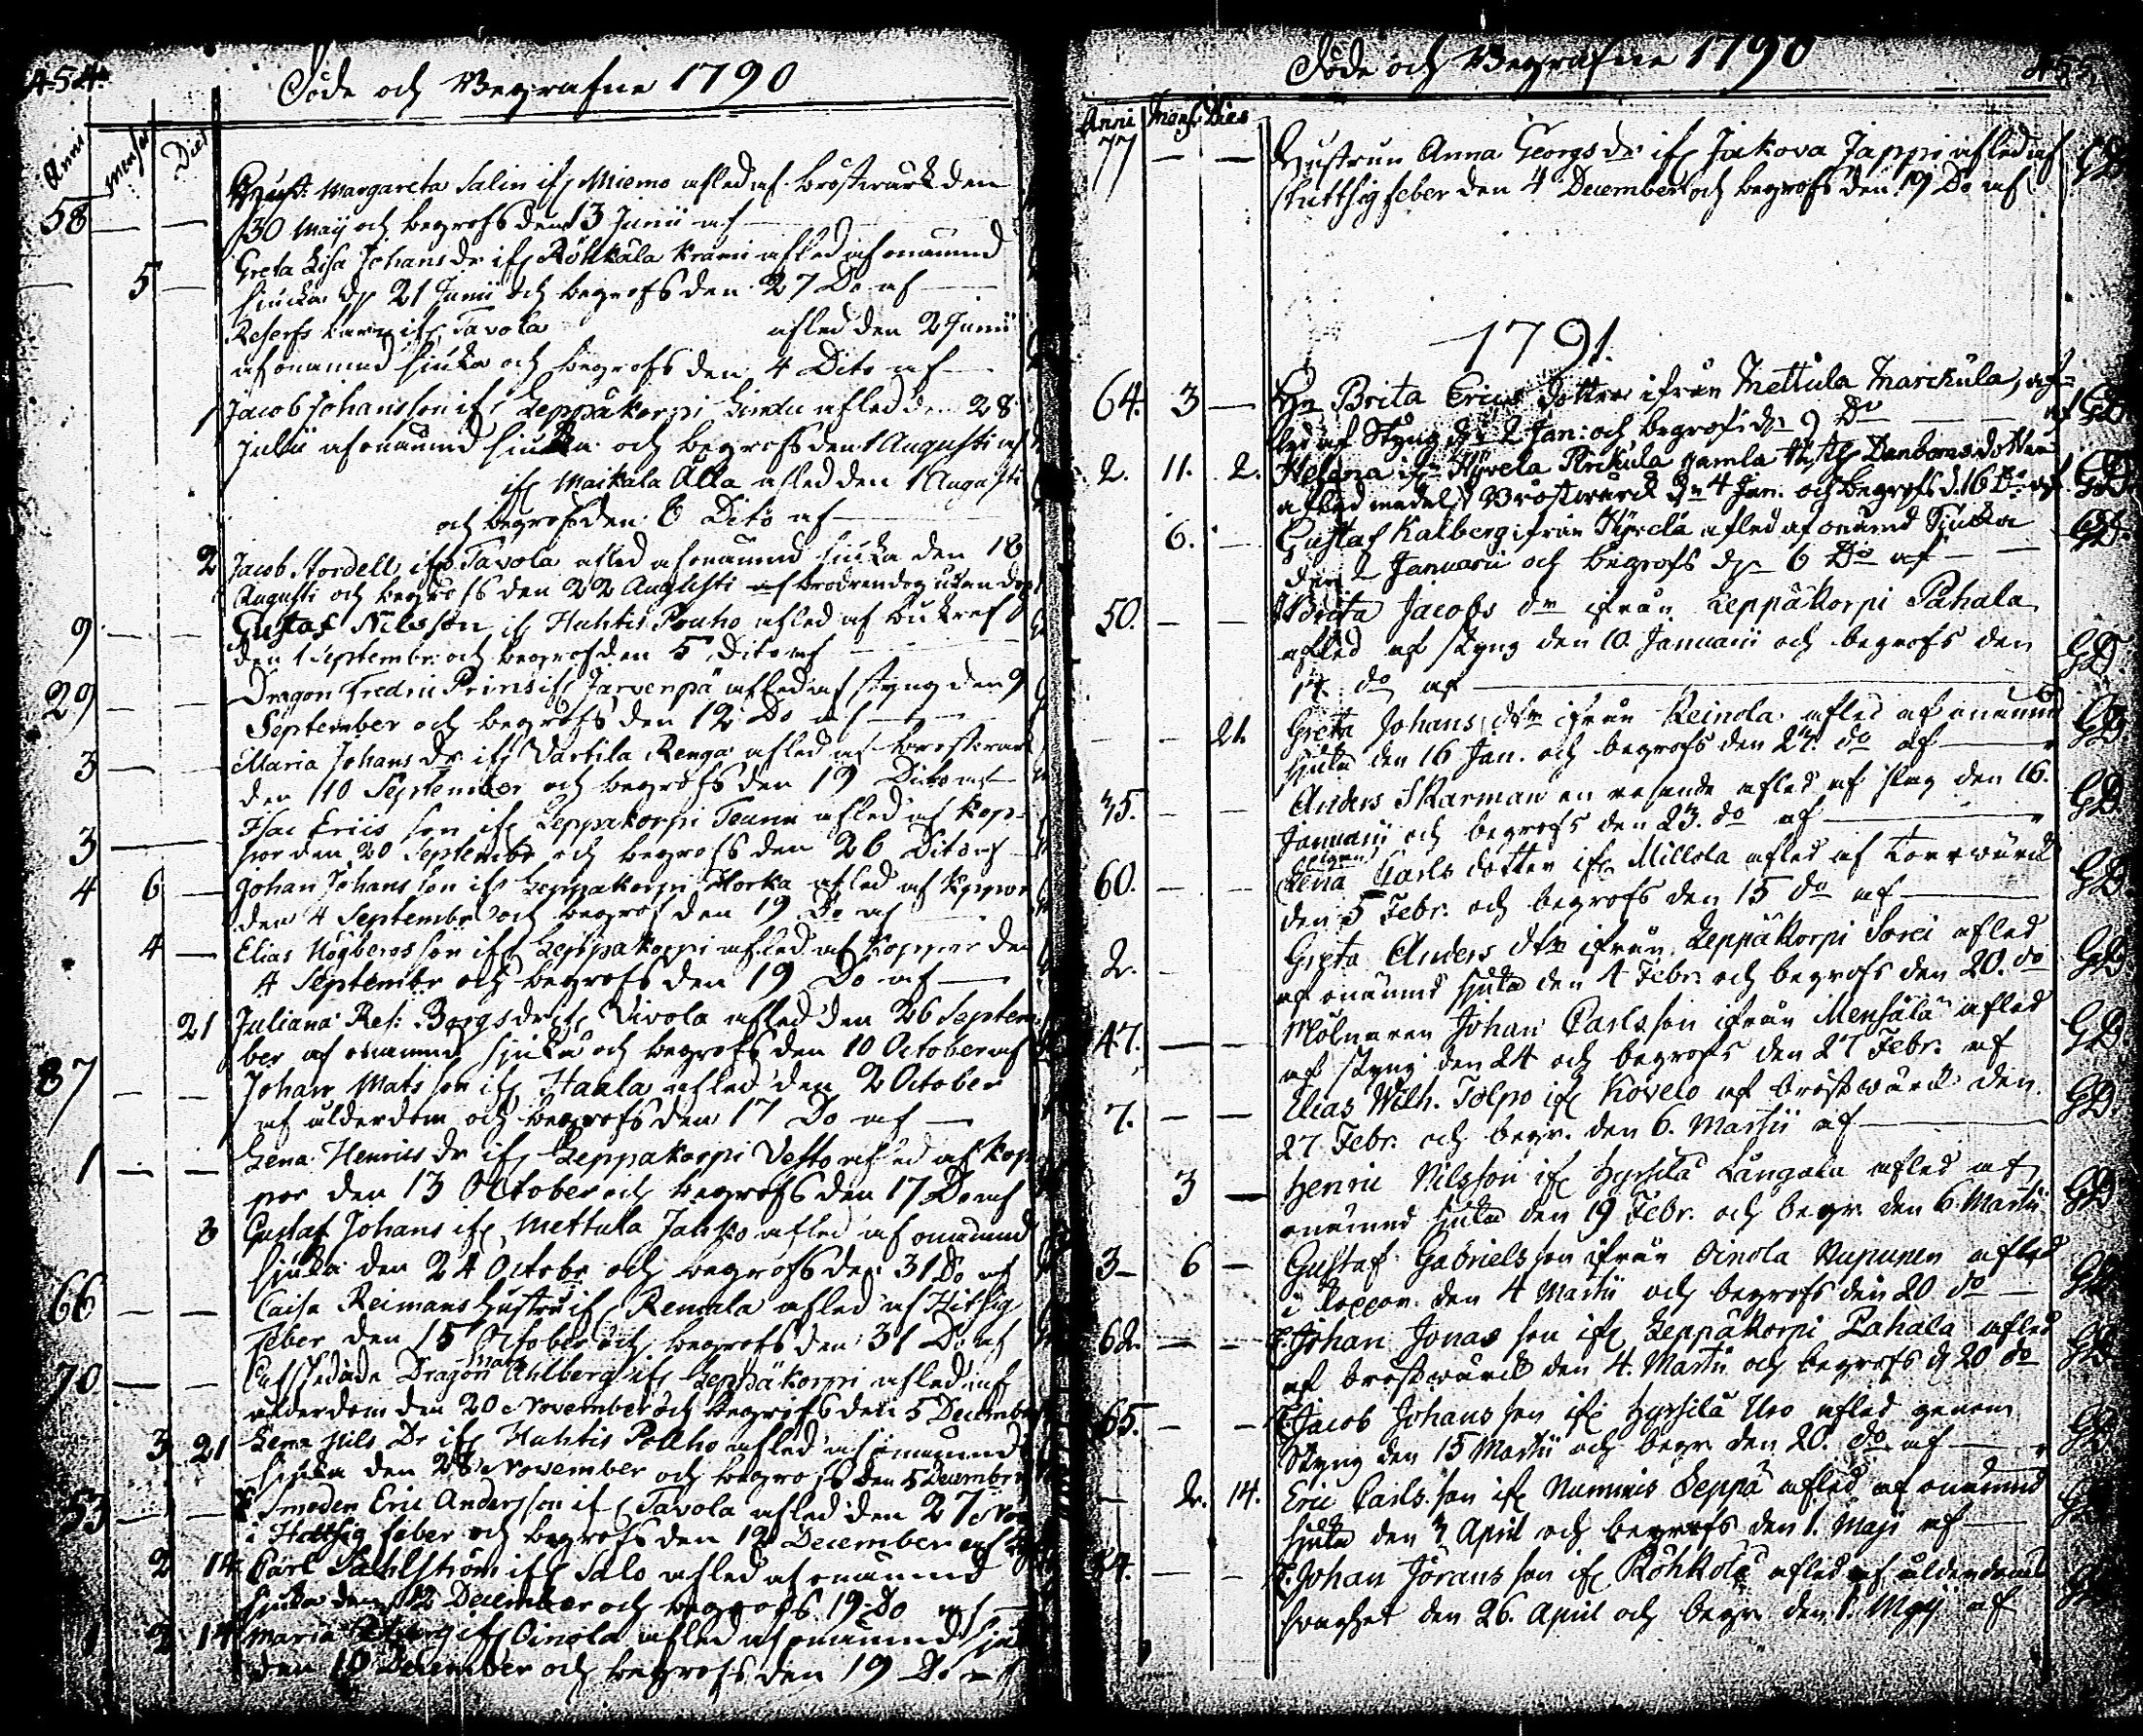 454.
Döde och Begrafne 1790
Anni Menses Dies
Hust: Margareta Salin ifr Miemo afled af bröstwärk den
58 — — 30 Maij och begrofs den 13 Junii af
Greta Lisa Johans dr ifr Röhkälä afled af onämnd
— 5 — siuka dn 21 Junii och begrofs den 27 Do af
barn ifr Tavola afled den 2 Junii
af onämnd siuka och begrofs den 4 Dito af
1 Jacob Johansson ifr Leppäkorpi afled den 28
Julii af onämnd siuka och begrofs den 1 Augusti af
ifr Maikala Alla afled den 1 Augusti
och begrofs den 8 Dito af
2 Jacob Nordell ifr Tavola afled af onämnd siuka den 18
Augusti och begrofs den 22 Augusti af
9 — — Gustaf Nilsson ifr Huhtis Pouho afled af
den 1 Septembr. och begrofs den 5 Dito af
29 — — Dragon Fredric Prins ifr Järvenpä afled af styng den 9
September och begrofs den 12 Do af
3 — Maria Johans dr ifr Vartila Renga afled af bröstwärk
den 10 September och begrofs den 19 Dito af
Isac Erics son ifr Leppäkorpi afled af kop-
3 — por den 20 Septembr och begrofs den 26 Dito af
4 6 — Johan Johans son ifr Leppakorpi Horka afled af koppor
den 4 Septembr och begrof den 19 Do af
4 — Elias Högbergs son ifr Leppakorpi afled af koppor den
4 Septembr och begrofs den 19 Do af
21 Juliana Borgs dr ifr Vivola afled den 26 Septem
ber af onämnd sjuka och begrofs den 10 October af
87 — — Johan Mats son ifr Haala afled den 2 October
af ålderdom och begrofs den 17 Do af
1 — — Lena Henrics dr ifr Leppäkorpi Vesto afled af kop
por den 13 October och begrofs den 17 Do af
8 Gustaf Johans ifr Mettula Jacko afled af onämnd
sjuka den 24 Octobr och begrofs den 31 Do af
66 — — Caisa Reimans Hustru ifr Remala afled af Hitsig
Feber den 15 October och begrofs den 31 Do af
70 — — Dragon Mats Ahlberg ifr Leppäkorpi afled af
ålderdom den 20 November och begrofs den 5 December
3 21 Lena Nils Dr ifr Huhtis Pouho afled af onämnd
siuka den 28 November och begrofs den 5 December
53 — — Smeden Eric Andersson ifr Tavola afled den 27 Nov
i Hettsig feber och begrofs den 12 December af
2 14 Carl Sahlström ifr Salo afled af onämnd
sjuka den 12 December och begrofs 19 Do af
1 2 14 Maria ifr Oinola afled af onämnd sjuk
den 10 December och begrofs den 19 Do af
Döde och Begrafne 1790
455
Anni Mens Dies
77 — — Hustrun Anna Georgs dr ifr Jakova Jappi afled af
hettsig feber den 4 December och begrofs den 19 Do af GD
1791.
64. 3 — Brita Erics dotter ifrån Mettula Marckula, af-
led af Styng dn 2 Jan: och begrofs dn 9 Do af GD
2. 11. 2. Helena ifrn Hyvela Pirkula gamla Danboms dotter
afled medelst Bröstwärck dn 4 Jan. och begrofs d. 16 Do af GD
6. — Gustaf Kalberg ifrån Hyrelä afled af onämnd Siuka GD.
den 2 Januarii och begrofs dn 6 Do af
50. — — Brita Jacobs dr ifrån Leppäkorpi Pahala
afled af styng den 10. Januarii och begrofs den GD.
17 do af
21. Greta Johans dtr ifrån Keinola afled af onämnd
sjuka den 16 Jan. och begrofs den 24. do af GD
75. — — Anders Skarman en resande afled af slag den 16.
Januarii och begrofs den 23. do af GD
60. — — Lena Carls dotter ifr Millola afled af Torrwärck
den 5 Febr. och begrofs den 15 do af GD
2. — Greta Anders dtr ifrån Leppäkorpi Sorri afled
af onämnd sjuka den 4 Febr. och begrofs den 20. do GD
47. — — Mölnaren Johan Carlsson ifrån Mensälä afled
af styng den 24 och begrofs den 27 Febr. af GD
7. — — Elias Wilh. Tolpo ifr Kovelo af bröstwärck den
27 Febr. och begr. den 6. Martii af GD
3 — Henric Nilsson ifr Hyrsilä Långala afled af
onämnd sjuka den 19 Febr. och begr. den 6 Martii GD
3 — 6 — Gustaf Gabriels son ifrån Oinola Nupunen afled
i koppor den 4 Martii och begrofs den 20 do — GD
62 — — Johan Jonas son ifr Leppäkorpi Pahala afled
af bröstwärck den 4. Martii och begrofs d 20 do GD
65. — — Jacob Johans son ifr Hyrsilä Uro afled genom
Styng den 15 Martii och begr. den 20. do af GD
— 2. 14. Eric Carls son ifr Nummis Seppä afled af onämnd
sjuka den 3 April och begrofs den 1. Maji af GD
84. — — Johan Jörans son ifr Röhkolä afled af ålderdoms
svaghet den 26. April och begr. den 1. Maji af GD